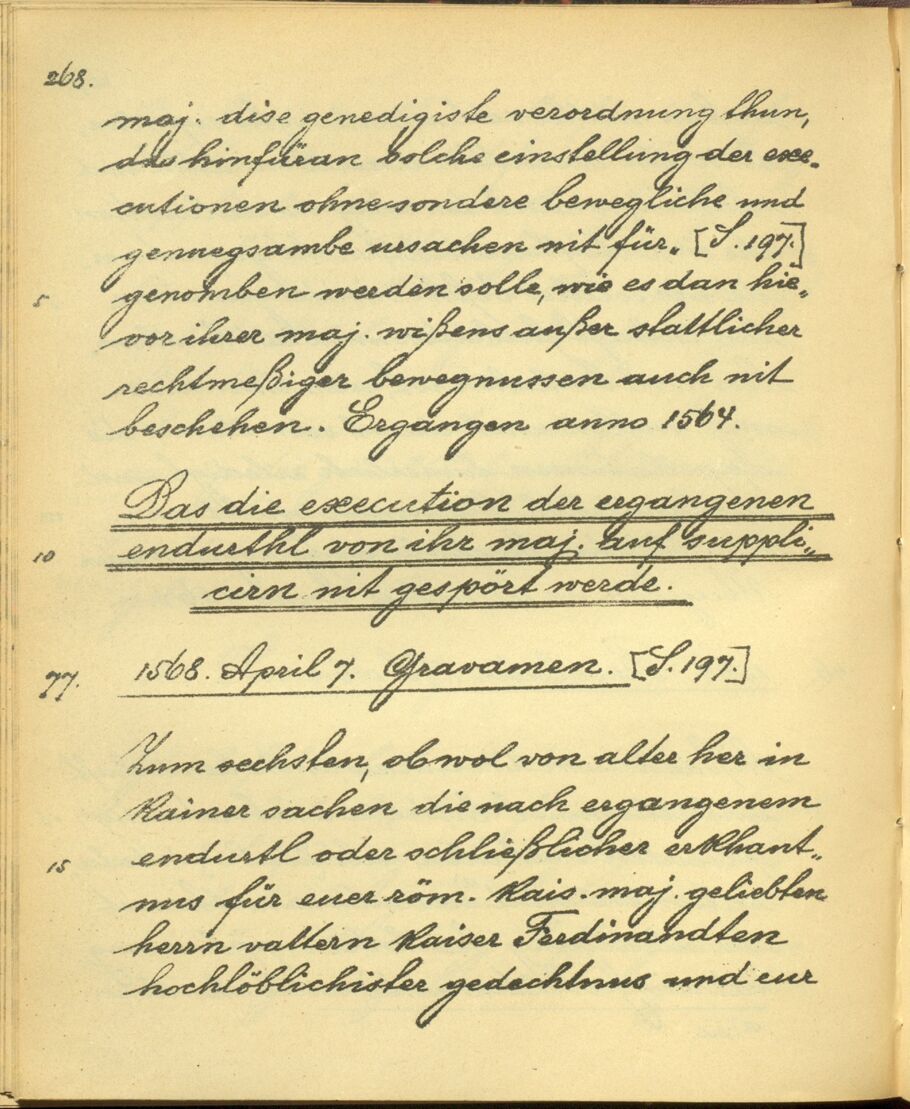 268.
maj. dise genedigiste verordnung thun,
das hinfüran solche einstellung der exe„
cutionen ohne sondere bewegliche und
genuegsambe ursachen nit für„ [S. 197.]
5 genomben werden solle, wie es dan hie„
vor ihrer maj. wißens außer stattlicher
rechtmeßiger bewegnussen auch nit
beschehen. Ergangen anno 1564.
Das die execution der ergangenen
10 endurthl von ihr maj. auf suppli„
cirn nit gespört werde.
77. 1568. April 7. Gravamen. [S. 197.]
Zum sechsten, obwol von alter her in
kainer sachen die nach ergangenem
15 endurtl oder schließlicher erkhant„
nus für euer röm. kais. maj. geliebten
herrn vattern kaiser Ferdinandten
hochlöblichister gedechtnus und eur